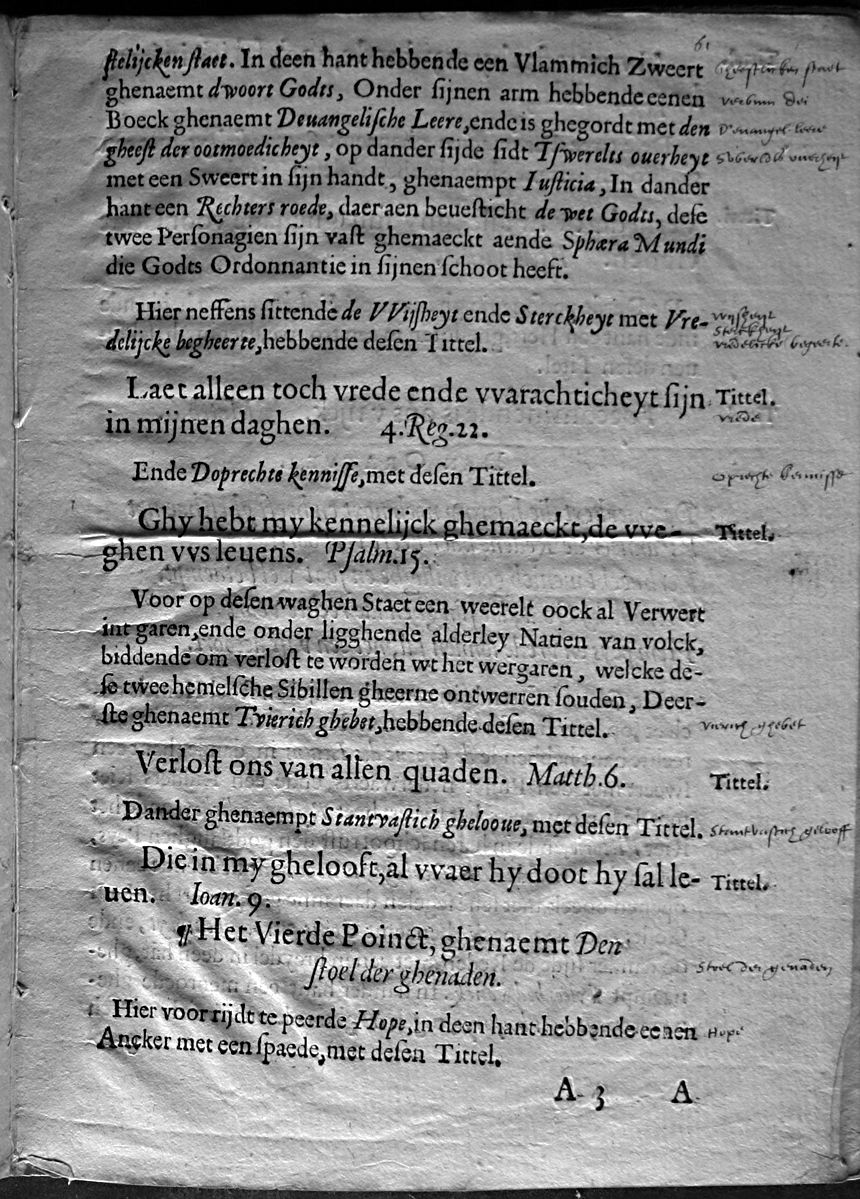 61
stelijcken staet. In deen hant hebbende een Vlammich Zweert
ghenaemt dwoort Godts, Onder sijnen arm hebbende eenen verbum Dei
Boeck ghenaemt Deuangelische Leere, ende is ghegordt met den
gheest der ootmoedicheyt, op dander sijde sidt Tswerelts ouerheyt
met een Sweert in sijn handt, ghenaempt Iusticia, In dander
hant een Rechters roede, daer aen beuesticht de wet Godts, dese
twee Personagien sijn vast ghemaeckt aende Sphæra Mundi
die Godts Ordonnantie in sijnen schoot heeft.
Hier neffens sittende de VVijsheyt ende Sterckheyt met Vre- wijsheyt
delijcke begheerte, hebbende desen Tittel.
Laet alleen toch vrede ende vvarachticheyt sijn Tittel.
in mijnen daghen. 4. Reg. 22. vrede
Ende Doprechte kennisse, met desen Tittel. oprechte kennisse
Ghy hebt my kennelijck ghemaeckt, de vve- Tittel.
ghen vvs leuens. Psalm. 15.
Voor op desen waghen Staet een weerelt oock al Verwert
int garen, ende onder ligghende alderley Natien van volck,
biddende om verlost te worden wt het wergaren, welcke de-
se twee hemelsche Sibillen gheerne ontwerren souden, Deer-
ste ghenaemt Tvierich ghebet, hebbende desen Tittel. vierich ghebet
Verlost ons van allen quaden. Matth. 6. Tittel.
Dander ghenaempt Stantvastich ghelooue, met desen Tittel. Stantvastich gelooff
Die in my ghelooft, al vvaer hy doot hy sal le- Tittel.
uen. Ioan. 9.
¶ Het Vierde Poinct, ghenaemt Den
stoel der ghenaden. Stoel der genaden
Hier voor rijdt te peerde Hope, in deen hant hebbende eenen Hope
Ancker met een spaede, met desen Tittel.
A 3 A